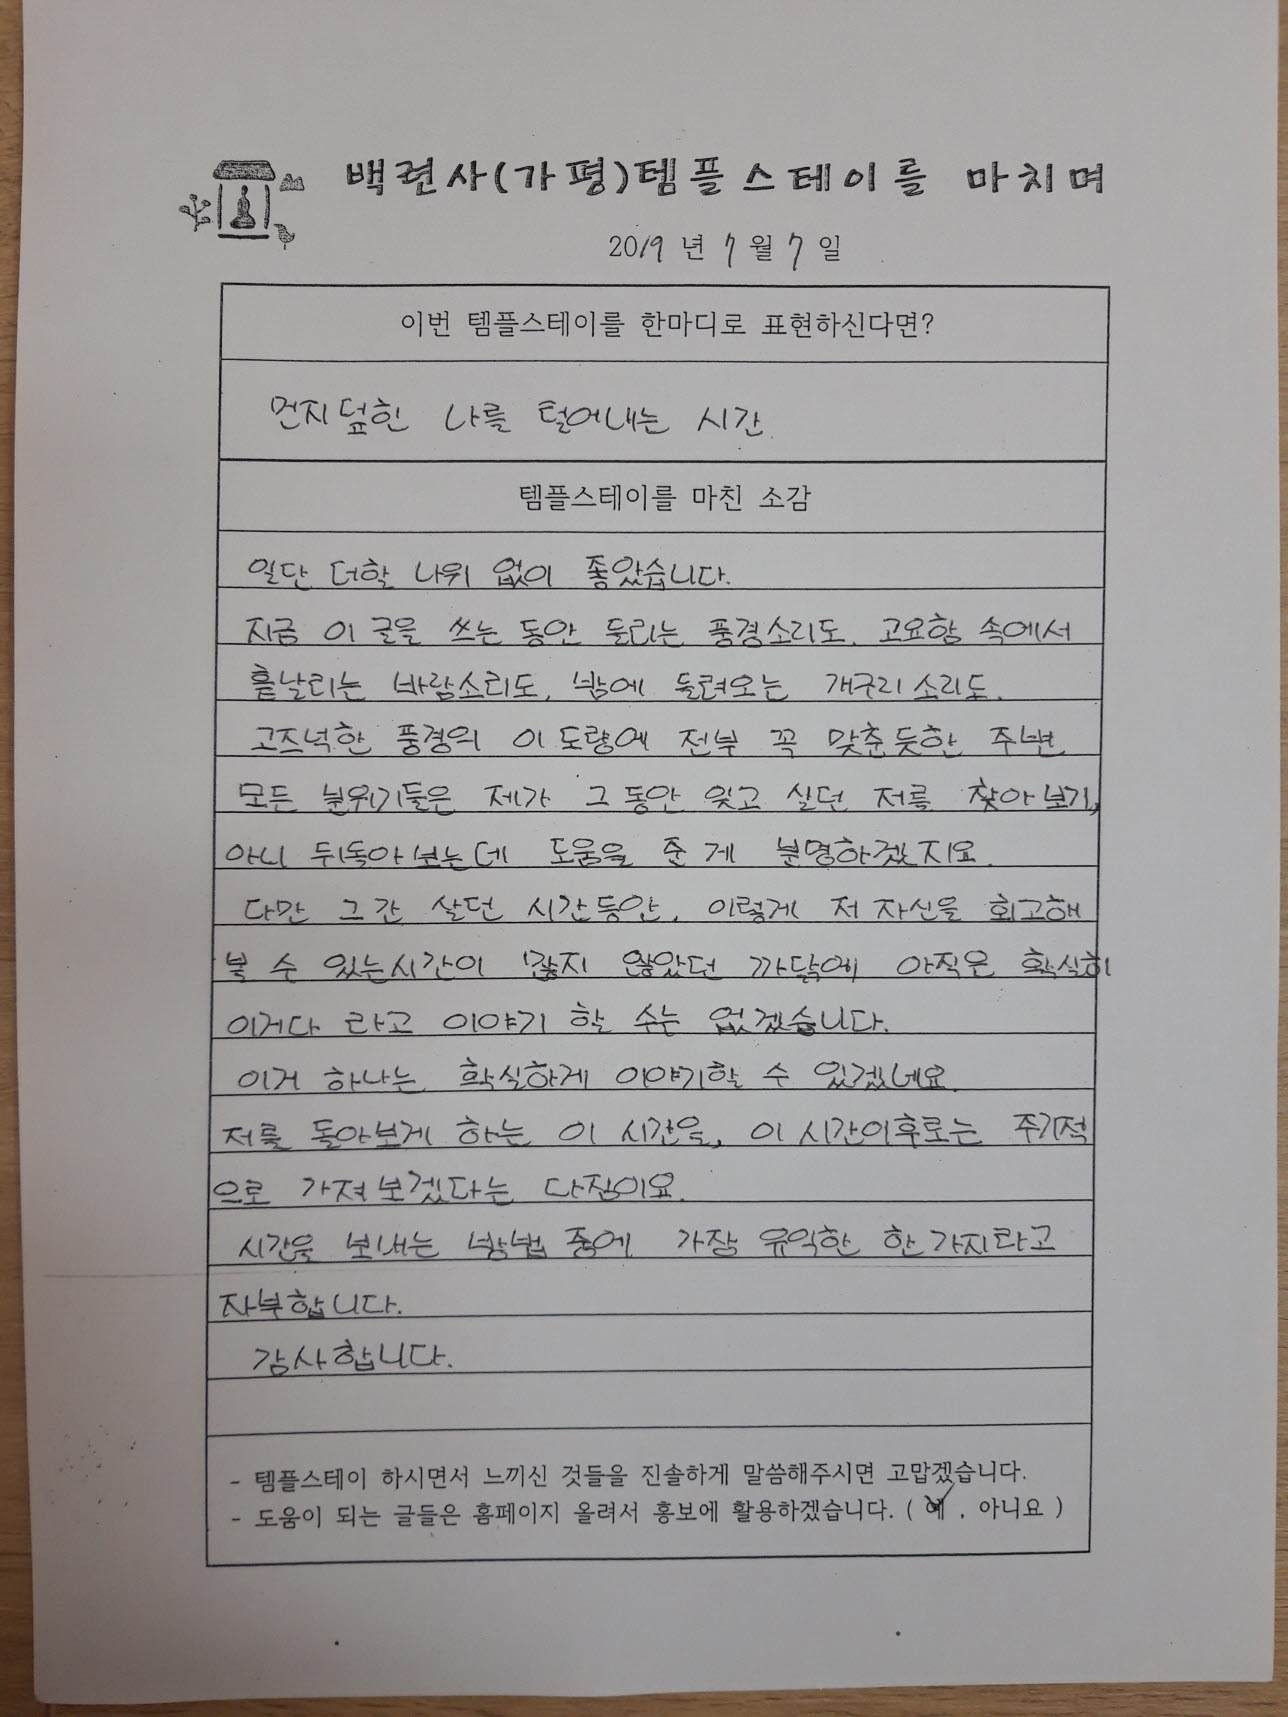 백련사(가평)템플스테이를 마치며
2019 년 7 월 7 일
이번 템플스테이를 한마디로 표현하신다면?
먼지덮힌 나를 털어내는 시간.
템플스테이를 마친 소감
일단 더할 나위 없이 좋았습니다.
지금 이 글을 쓰는 동안 들리는 풍경소리도, 고요함 속에서
흩날리는 바람소리도, 밤에 들려오는 개구리 소리도.
고즈넉한 풍경의 이 도량에 전부 꼭 맞춘듯한 주변
모든 분위기들은 제가 그 동안 잊고 살던 저를 찾아보기,
아니 뒤돌아보는데 도움을 준 게 분명하겠지요.
다만 그간 살던 시간동안, 이렇게 저 자신을 회고해
볼 수 있는시간이 많지 않았던 까닭에 아직은 확실히
이거다 라고 이야기 할 수는 없겠습니다.
이거 하나는 확실하게 이야기할 수 있겠네요.
저를 돌아보게 하는 이 시간을, 이 시간이후로는 주기적
으로 가져보겠다는 다짐이요.
시간을 보내는 방법 중에 가장 유익한 한가지라고
자부합니다.
감사합니다.
- 템플스테이 하시면서 느끼신 것들을 진솔하게 말씀해주시면 고맙겠습니다.
- 도움이 되는 글들은 홈페이지 올려서 홍보에 활용하겠습니다. ( 예 , 아니요 )